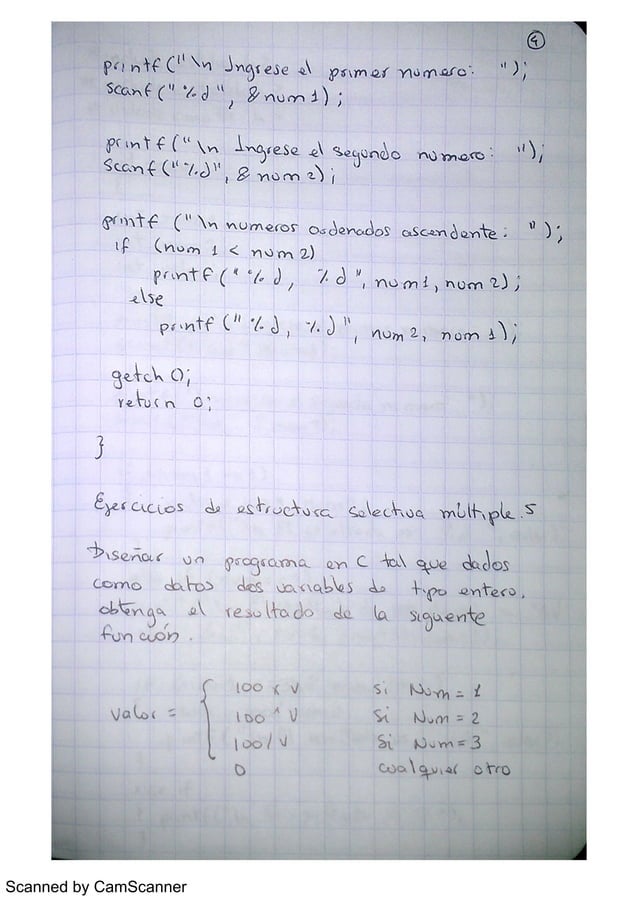 4
printf ("\n Ingrese el primer numero: ");
scanf ("%d", &num1);
printf ("\n Ingrese el segundo numero: ");
scanf ("%d", &num2);
printf ("\n numeros ordenados ascendente: ");
if (num1 < num2)
printf ("%d, %d", num1, num2);
else
printf ("%d, %d", num2, num1);
getch();
return 0;
}
Ejercicios de estructura selectiva múltiple. 5
Diseñar un programa en C tal que dados
como datos dos variables de tipo entero,
obtenga el resultado de la siguente
función.
100 x V si Num = 1
valor = { 100 ^ V si Num = 2
100 / V si Num = 3
0 cualquier otro
Scanned by CamScanner